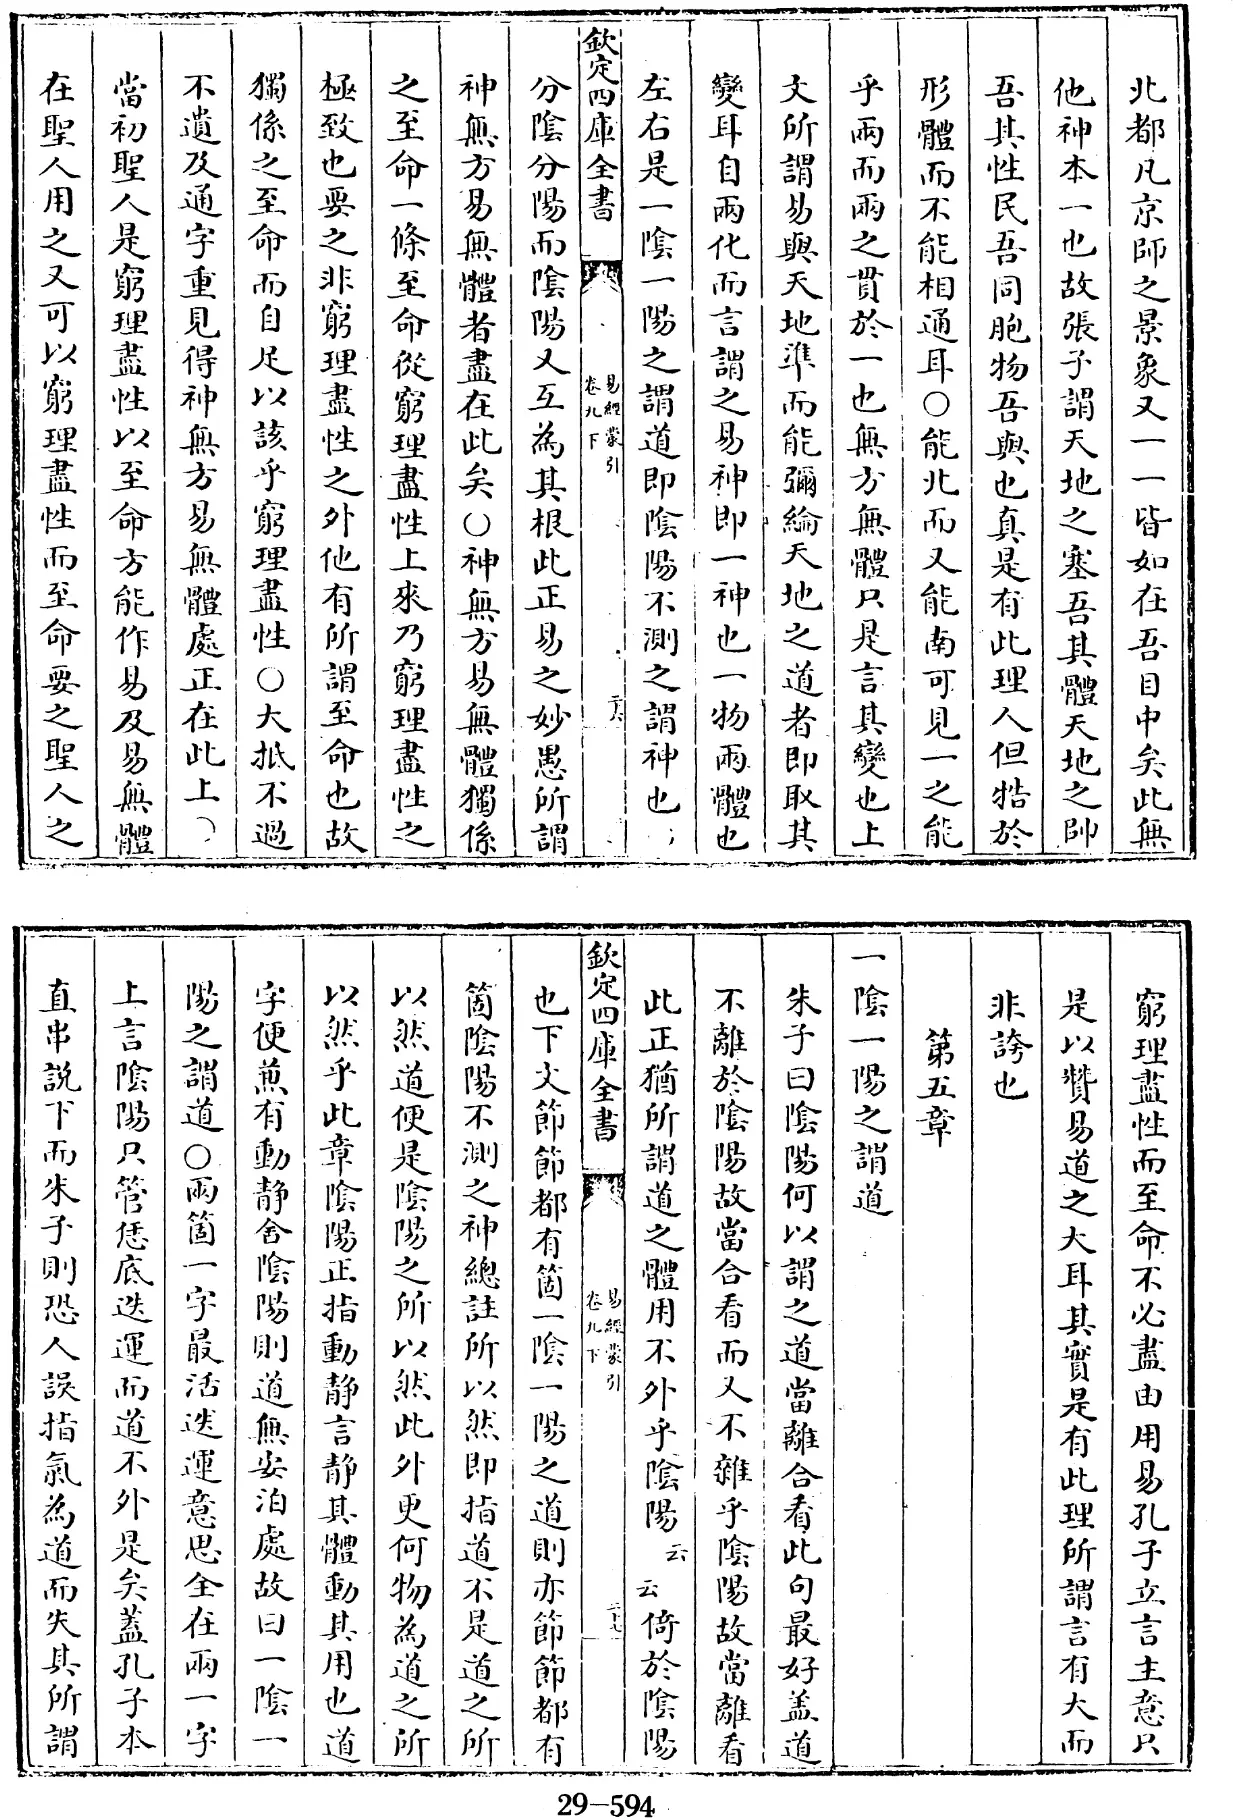 北都凡京師之景象又一一皆如在吾目中矣此無
他神本一也故張子謂天地之塞吾其體天地之帥
吾其性民吾同胞物吾與也真是有此理人但牿於
形體而不能相通耳○能北而又能南可見一之能
乎兩而兩之貫於一也無方無體只是言其變也上
文所謂易與天地準而能彌綸天地之道者即取其
變耳自兩化而言謂之易神即一神也一物兩體也
左右是一陰一陽之謂道即陰陽不測之謂神也
欽定四庫全書
易經蒙引
卷九下
二十六
分陰分陽而陰陽又互為其根此正易之妙愚所謂
神無方易無體者盡在此矣○神無方易無體獨係
之至命一條至命從窮理盡性上來乃窮理盡性之
極致也要之非窮理盡性之外他有所謂至命也故
獨係之至命而自足以該乎窮理盡性○大抵不過
不遺及通字重見得神無方易無體處正在此上○
當初聖人是窮理盡性以至命方能作易及易無體
在聖人用之又可以窮理盡性而至命要之聖人之
窮理盡性而至命不必盡由用易孔子立言主意只
是以贊易道之大耳其實是有此理所謂言有大而
非誇也
第五章
一陰一陽之謂道
朱子曰陰陽何以謂之道當離合看此句最好盖道
不離於陰陽故當合看而又不雜乎陰陽故當離看
此正猶所謂道之體用不外乎陰陽云云倚於陰陽
欽定四庫全書
易經蒙引
卷九下
二十七
也下文節節都有箇一陰一陽之道則亦節節都有
箇陰陽不測之神總註所以然即指道不是道之所
以然道便是陰陽之所以然此外更何物為道之所
以然乎此章陰陽正指動静言静其體動其用也道
字便兼有動静舍陰陽則道無安泊處故曰一陰一
陽之謂道○兩箇一字最活迭運意思全在兩一字
上言陰陽只管恁底迭運而道不外是矣蓋孔子本
直串說下而朱子則恐人誤指氣為道而失其所謂
29—594